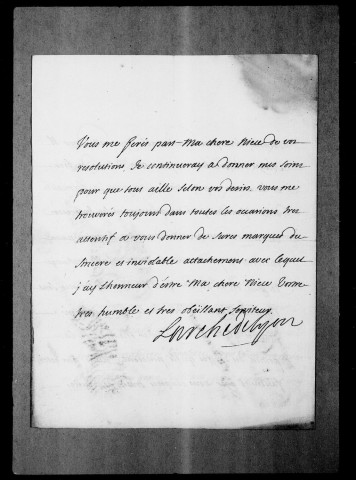 Vous me ferés part Ma chere Niece de vos
resolutions, Je continueray a donner mes soins
pour que tout aille selon vos desirs. vous me
trouverés toujours dans toutes les occasions tres
attentif a vous donner de sures marques du
sincere et inviolable attachement avec lequel
j'ay l'honneur d'être Ma chere Niece Votre
tres humble et tres obeïssant serviteur.
L'arch. de Lyon